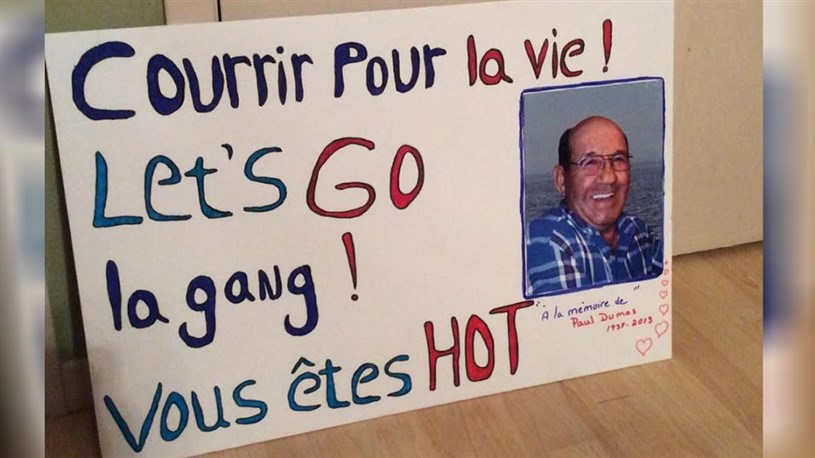 Courrir Pour la vie !
Let's GO
la gang !
Vous êtes HOT
"À la mémoire de"
Paul Dumas
1938-2013